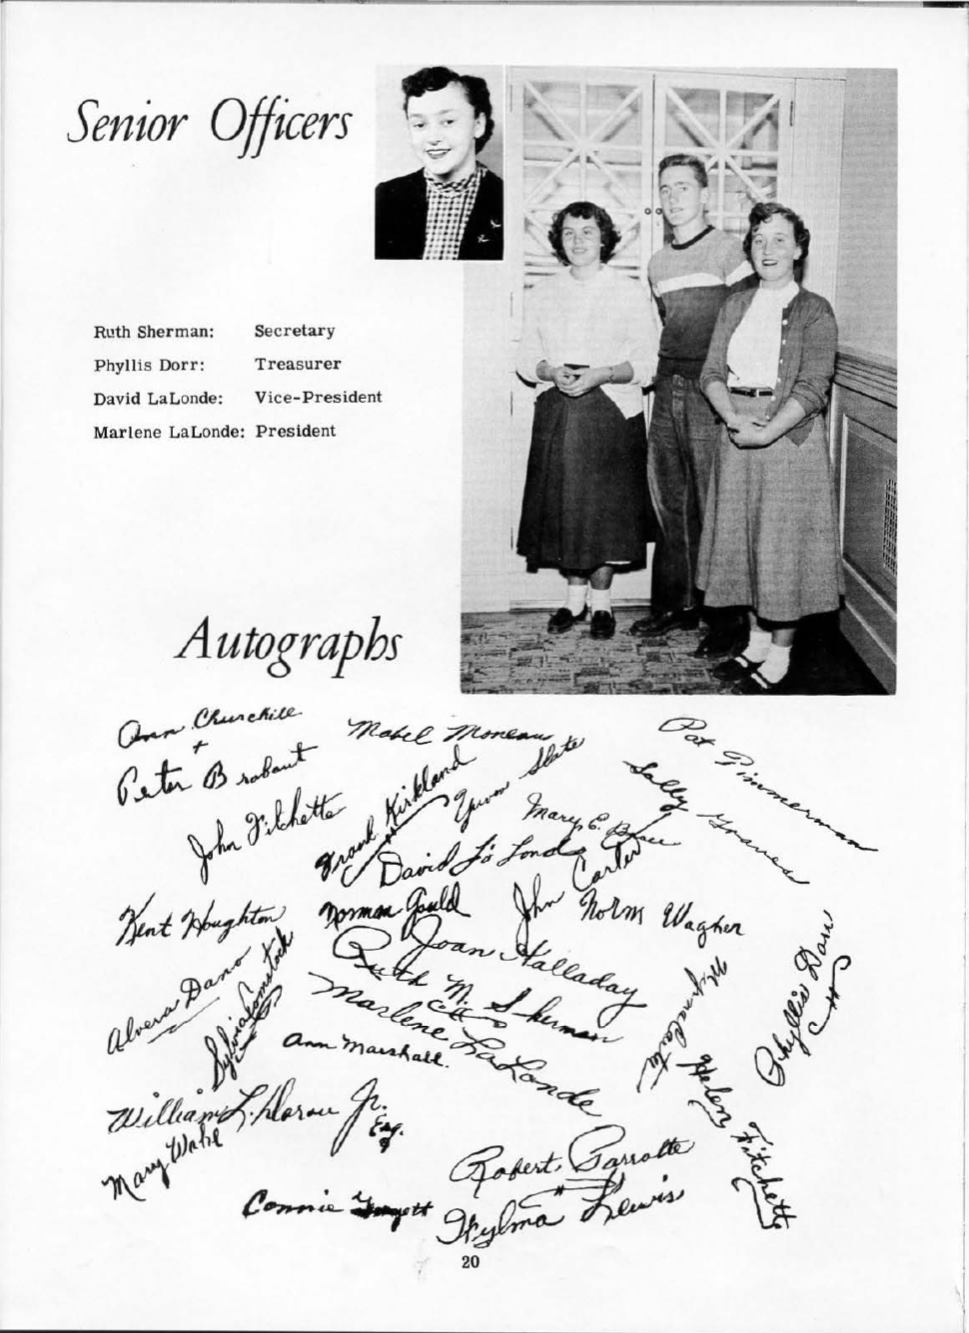 Senior Officers
Ruth Sherman: Secretary
Phyllis Dorr: Treasurer
David LaLonde: Vice-President
Marlene LaLonde: President
Autographs
Ann Churchill
+
Peter Brabaut
Mabel Moneau
Pat Pimmerman
John Fitchette
Frank Kirkland
Slate
Sally Graves
Mary E.
David La Londe
John Carter
Kent Houghton
Norman Gould
Norm Wagner
Joan Halladay
Ruth M. Sherman
Alvera Dano
Sylvia Comstock
Marlene LaLonde
Phyllis Dorr
Ann Marshall.
Helen Fitchette
William L. Darou Jr.
Esq.
Mary Wahl
Robert Parrotte
Connie
Thylma Lewis
20